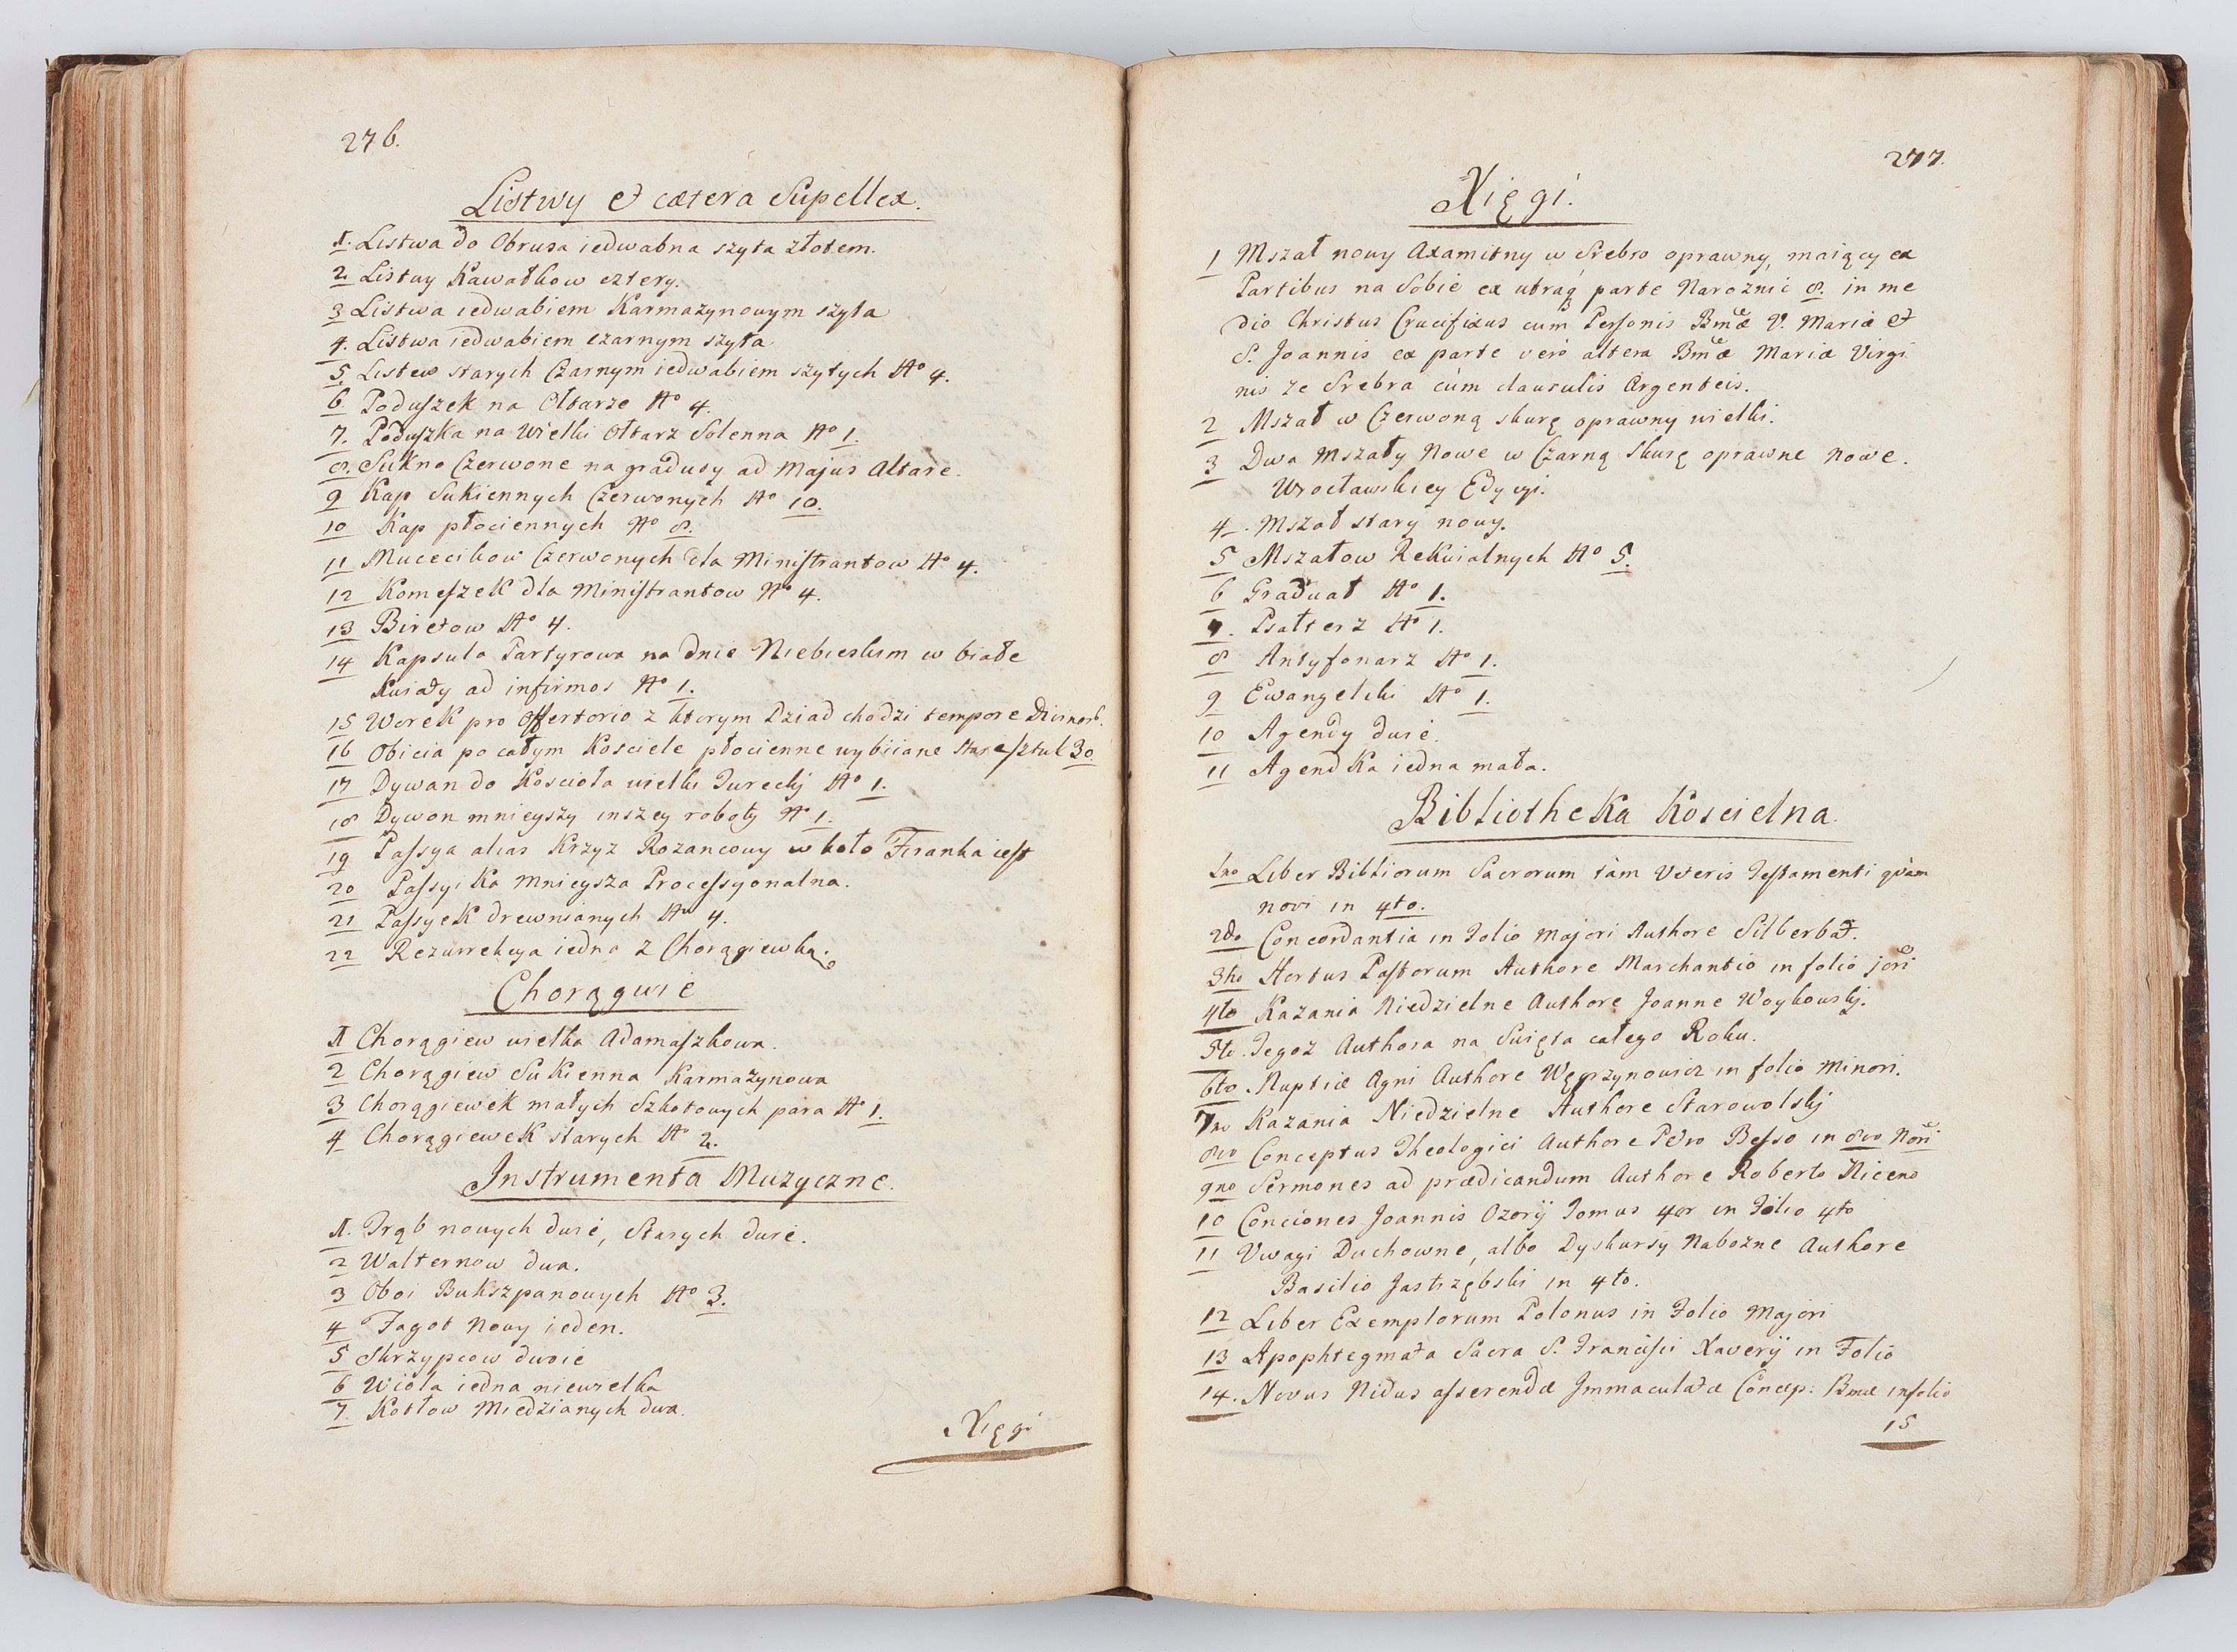 276.
Listwy et cætera Supellex.
1. Listwa do Obrusa iedwabna szyta złotem.
2 Listwy Kawałkow cztery.
3 Listwa iedwabiem Karmazynowym szyta
4. Listwa iedwabiem czarnym szyta
5 Listew starych Czarnym iedwabiem szytych No 4.
6 Poduszek na Ołtarze No 4.
7. Poduszka na Wielki Ołtarz Solenna No 1.
8. Sukno Czerwone na gradusy ad Majus Altare.
9 Kap Sukiennych Czerwonych No 10.
10 Kap płociennych No 8.
11 Mucecikow Czerwonych dla Ministrantow No 4.
12 Komeszek dla Ministrantow No 4.
13 Biretow No 4.
14 Kapsula Partyrowa na dnie Niebieskim w białe
Kwiaty ad infirmos No 1.
15 Worek pro Offertorio z ktorym Dziad chodzi tempore
16 Obicia po całym Kosciele płocienne wybiiane stare sztuk 30
17 Dywan do Koscioła wielki Turecky No 1.
18 Dywon mnieyszy inszey roboty No 1.
19 Passya alias Krzyz Rozancowy w koło Firanka iest
20 Passyika Mnieysza Processyonalna.
21 Passyek drewnianych No 4.
22 Rezurrekcya iedna z Chorągiewką.
Chorągwie
1 Chorągiew wielka Adamaszkowa.
2 Chorągiew Sukienna Karmazynowa
3 Chorągiewek małych Szkotowych para No 1.
4 Chorągiewek starych No 2.
Instrumenta Muzyczne.
1. Trąb nowych dwie, Starych dwie.
2 Walternow dwa.
3 Oboi Bukszpanowych No 3.
4 Fagot Nowy ieden.
5 Skrzypcow dwoie
6 Wiola iedna niewielka
7. Kotłow Miedzianych dwa.
Xięgi
277.
Xięgi.
1 Mszał nowy Axamitny w Srebro oprawny, maiący ex
Partibus na Sobie ex utraq parte Naroznic 8. in me
dio Christus Crucifixus cum Personis Bmæ V. Mariæ et
S. Joannis ex parte verò altera Bmæ Mariæ Virgi
nis ze Srebra cùm clausulis Argenteis.
2 Mszał w Czerwoną skurę oprawny wielki.
3 Dwa Mszały Nowe w Czarną Skurę oprawne Nowe.
Wrocławskiey Edycyi.
4. Mszał stary nowy.
5 Mszałow Rekwialnych No 5.
6 Graduał No 1.
7. Psałterz No 1.
8 Antyfonarz No 1.
9 Ewangeliki No 1.
10 Agendy dwie.
11 Agendka iedna mała.
Bibliotheka Koscielna.
1mo Liber Bibliorum Sacrorum tàm Veteris Testamenti qvàm
novi in 4to.
2do Concordantia in Folio Majori Authore Silberbat.
3tio Hortus Pastorum Authore Marchantio in folio jori
4to Kazania Niedzielne Authore Joanne Woykowsky.
5to. Tegoz Authora na Swięta całego Roku.
6to. Nuptiæ Agni Authore Węgrzynowicz in folio Minori.
7mo Kazania Niedzielne Authore Starowolsky
8vo Conceptus Theologici Authore Petro Besso in 8vo Nori
9no Sermones ad prædicandum Authore Roberto Liceno
10 Conciones Joannis Ozorij Tomus 4or in Folio 4to
11 Uwagi Duchowne, albo Dyskursy Nabozne Authore
Basilio Jastrzębski in 4to.
12 Liber Exemplorum Polonus in Folio Majori
13 Apophtegmata Sacra S. Francisci Xaverij in Folio
14. Novus Nidus asserendæ Immaculatæ Concep: Bmæ in folio
15